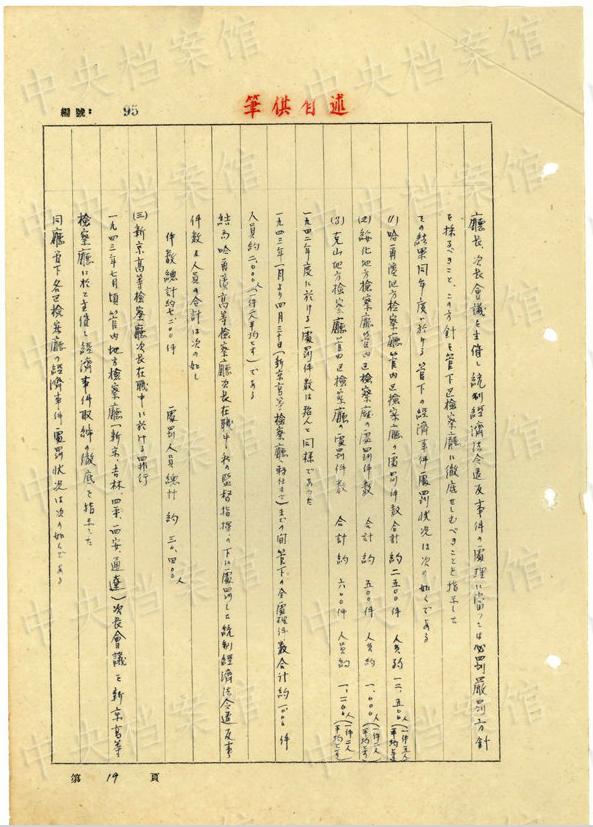 述自供筆
編號: 95
廳長、次長会議を主催し統制経済法令違反事件の處理に當つては必罰嚴罰方針
を採るべきこと、この方針を管下區檢察廳に徹底せしむべきことを指示した
その結果同年度に於ける管下の経済事件處罰状況は次の如くである
(1) 哈爾濱地方檢察廳管内區檢察廳の處罰件数合計約二五〇〇件 人員約一二、五〇〇人
(2) 綏化地方檢察廳管内區檢察廳の處罰件数 合計約五〇〇件 人員約一、〇〇〇人
(3) 克山地方檢察廳管内區檢察廳の處罰件数 合計約六〇〇件 人員約一、二〇〇人
一九四二年度に於ける處罰件数は殆んど同様であつた
一九四三年一月より四月三十日(新京高等檢察廳転任まで)までの間管下の全處理件数合計約一、〇〇〇件
人員約二、〇〇〇人(一件二人平均です)である
結局哈爾濱高等檢察廳次長在職中私の監督指揮の下に處罰した統制経済法令違反事
件数及人員の合計は次の如し
件数總計約七二〇〇件 處罰人員總計 約三〇、四〇〇人
(三) 新京高等檢察廳次長在職中に於ける罪行
一九四三年七月頃管内地方檢察廳(新京、吉林、四平、西安、通遼)次長會議を新京高等
檢察廳に於て主催し経済事件取締の徹底を指示した
同廳管下各區檢察廳の経済事件處罰状況は次の如くである
第 19 頁
中央档案馆